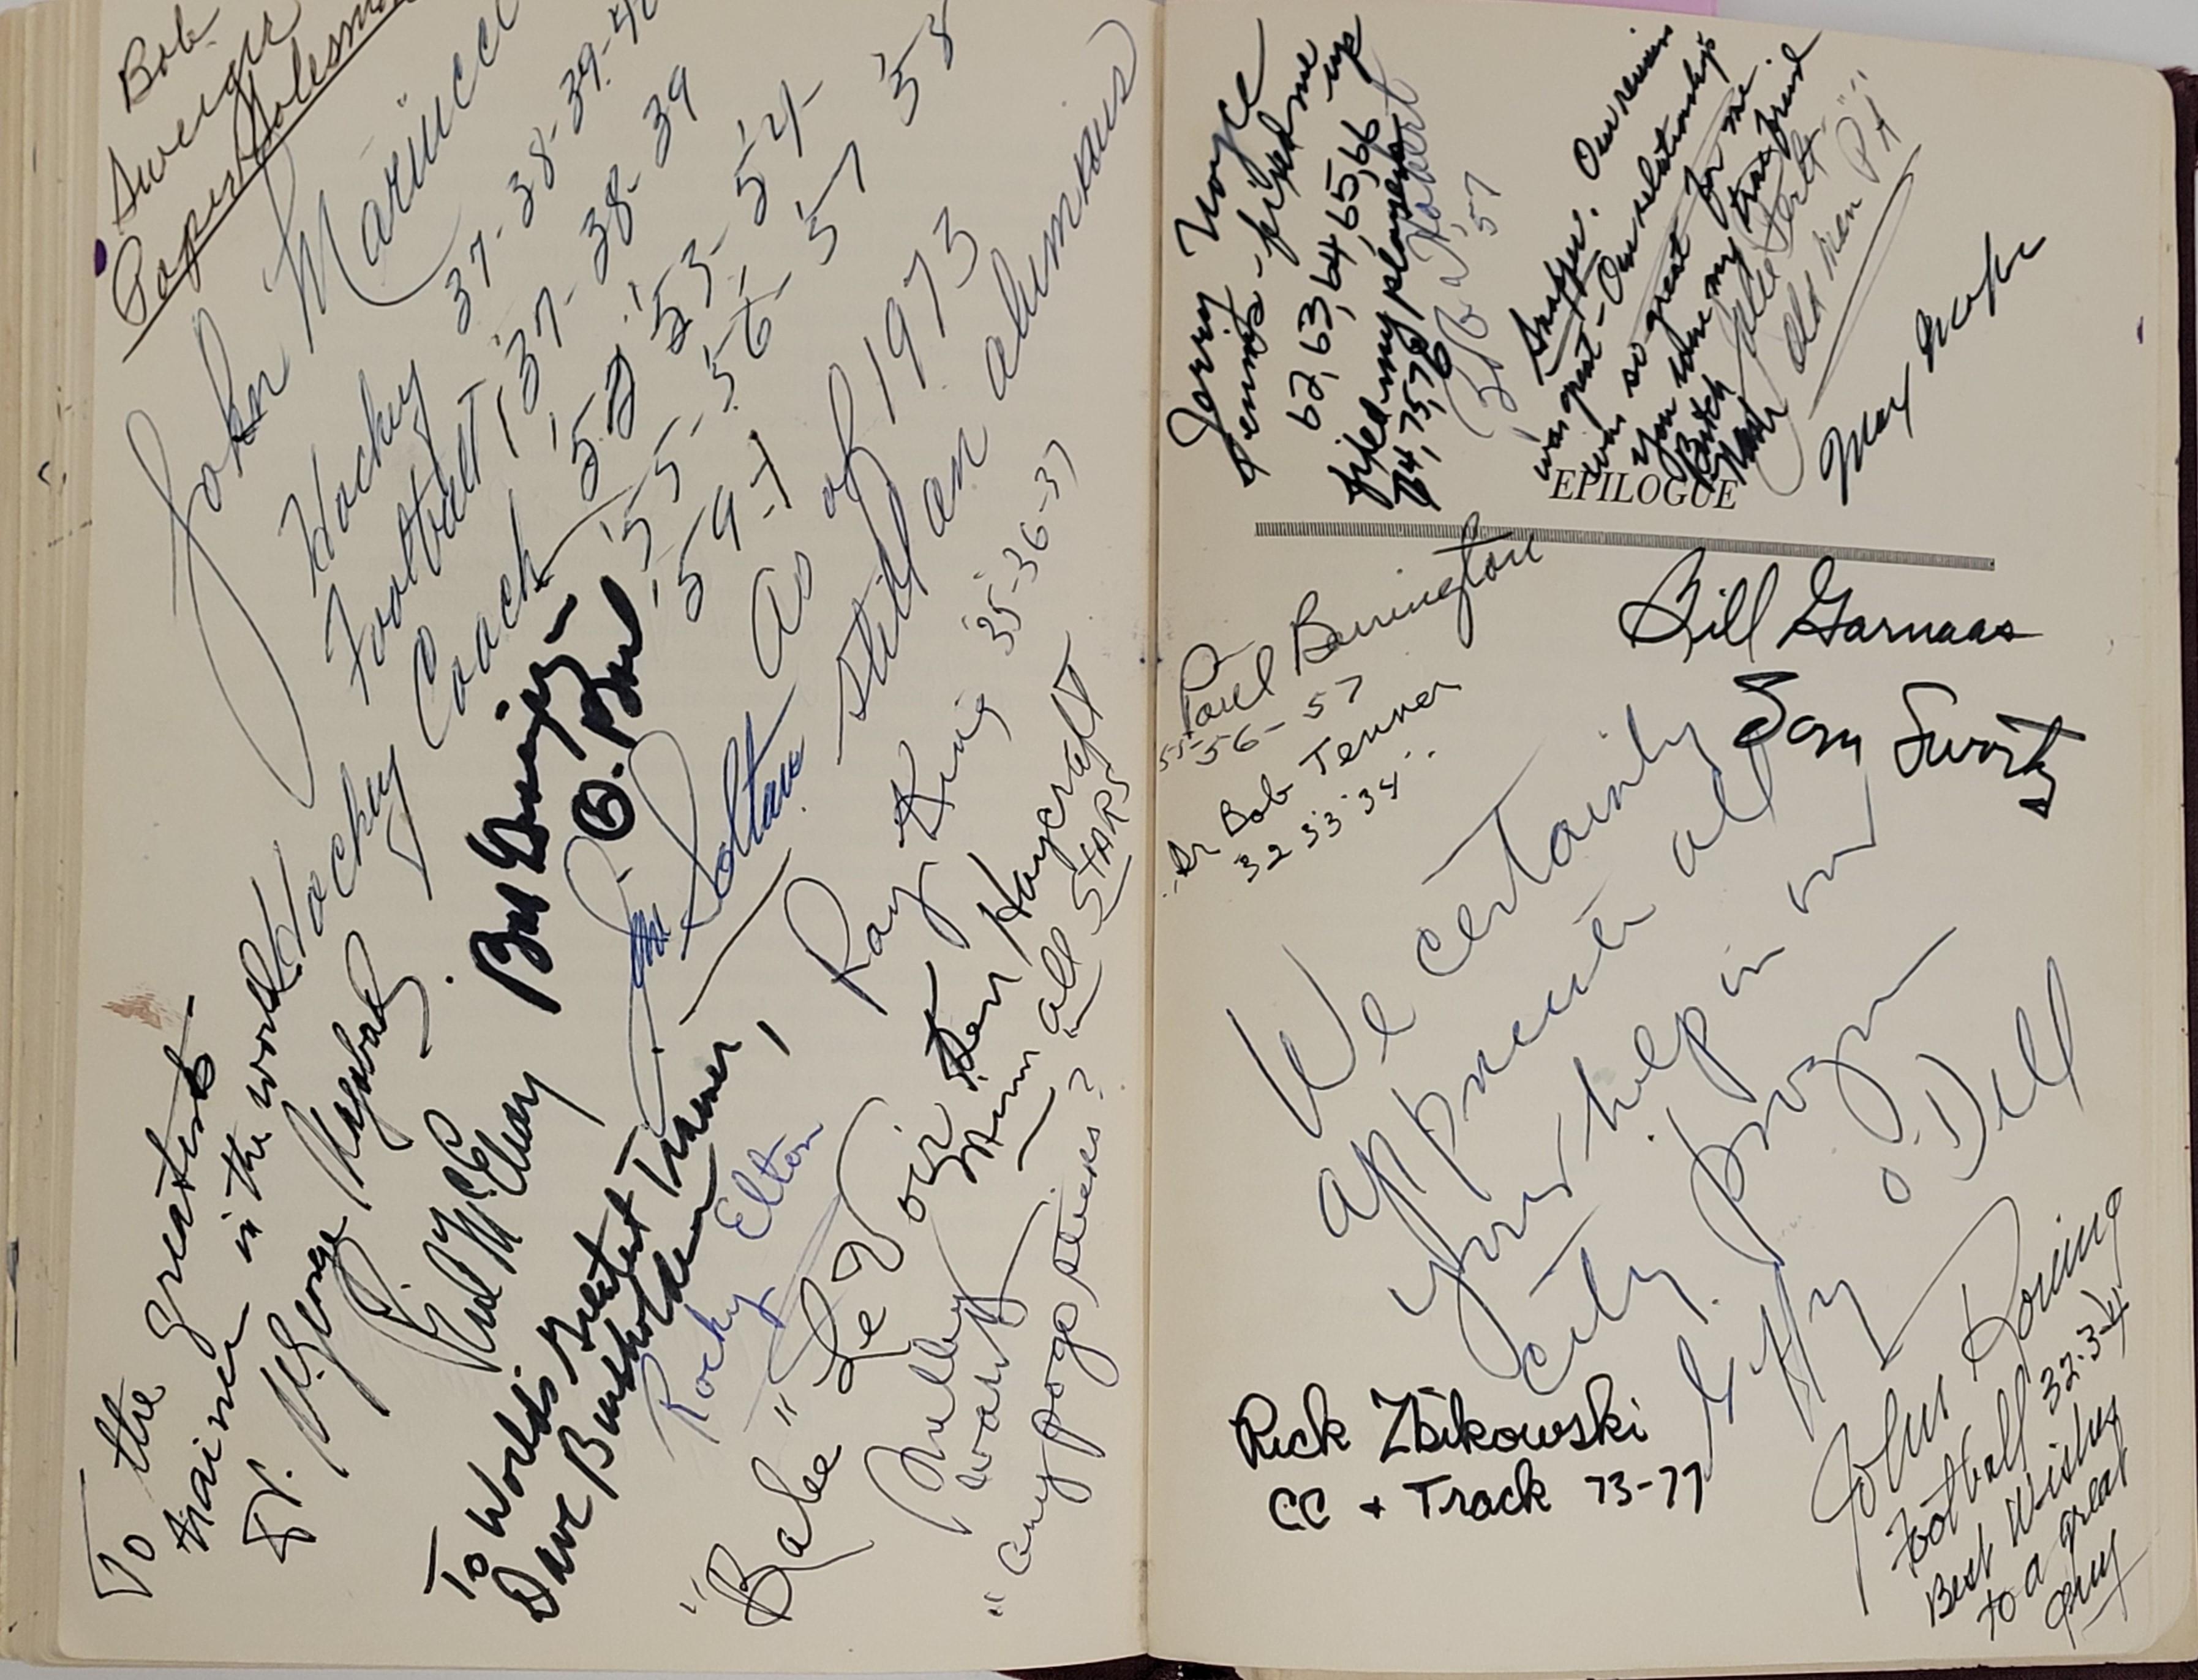 Bob
Paper Salesman
John Mariucci
Hockey 37-38-39-40
Football '37-38-39
Hockey Coach '52 '53-'54-
'55-'56-'57 '58
'59-?
As of 1973
still an alumnus
To the greatest
trainer in the world
Dr. George
Bud
O. Bud
Jim Soltau
Ray King '35-36-37
To World's Greatest Trainer,
Dave Burkholder
Rocky Elton
"Babe" LeVoir
Ken Haycraft
Minn "all STARS"
want
"any pogo sticks?
Jerry Noyce
Tennis - fixed me up
62, 63, 64, 65, 66
fixed my players
74, 75, 76
'57
Snapper. Our reunion
was great - Our relationships
was so great for me.
You were my true friend
Butch
Nash
old men PA
EPILOGUE
Bill Garnaas
Paul Barrington
55-56-57
Dr Bob Tenner
'32 '33 '34
We certainly
appreciate all
your help in our
city program
O'Dell
Rick Zbikowski
CC + Track 73-77
John Roning
Football 32-34
Best Wishes
to a great
guy